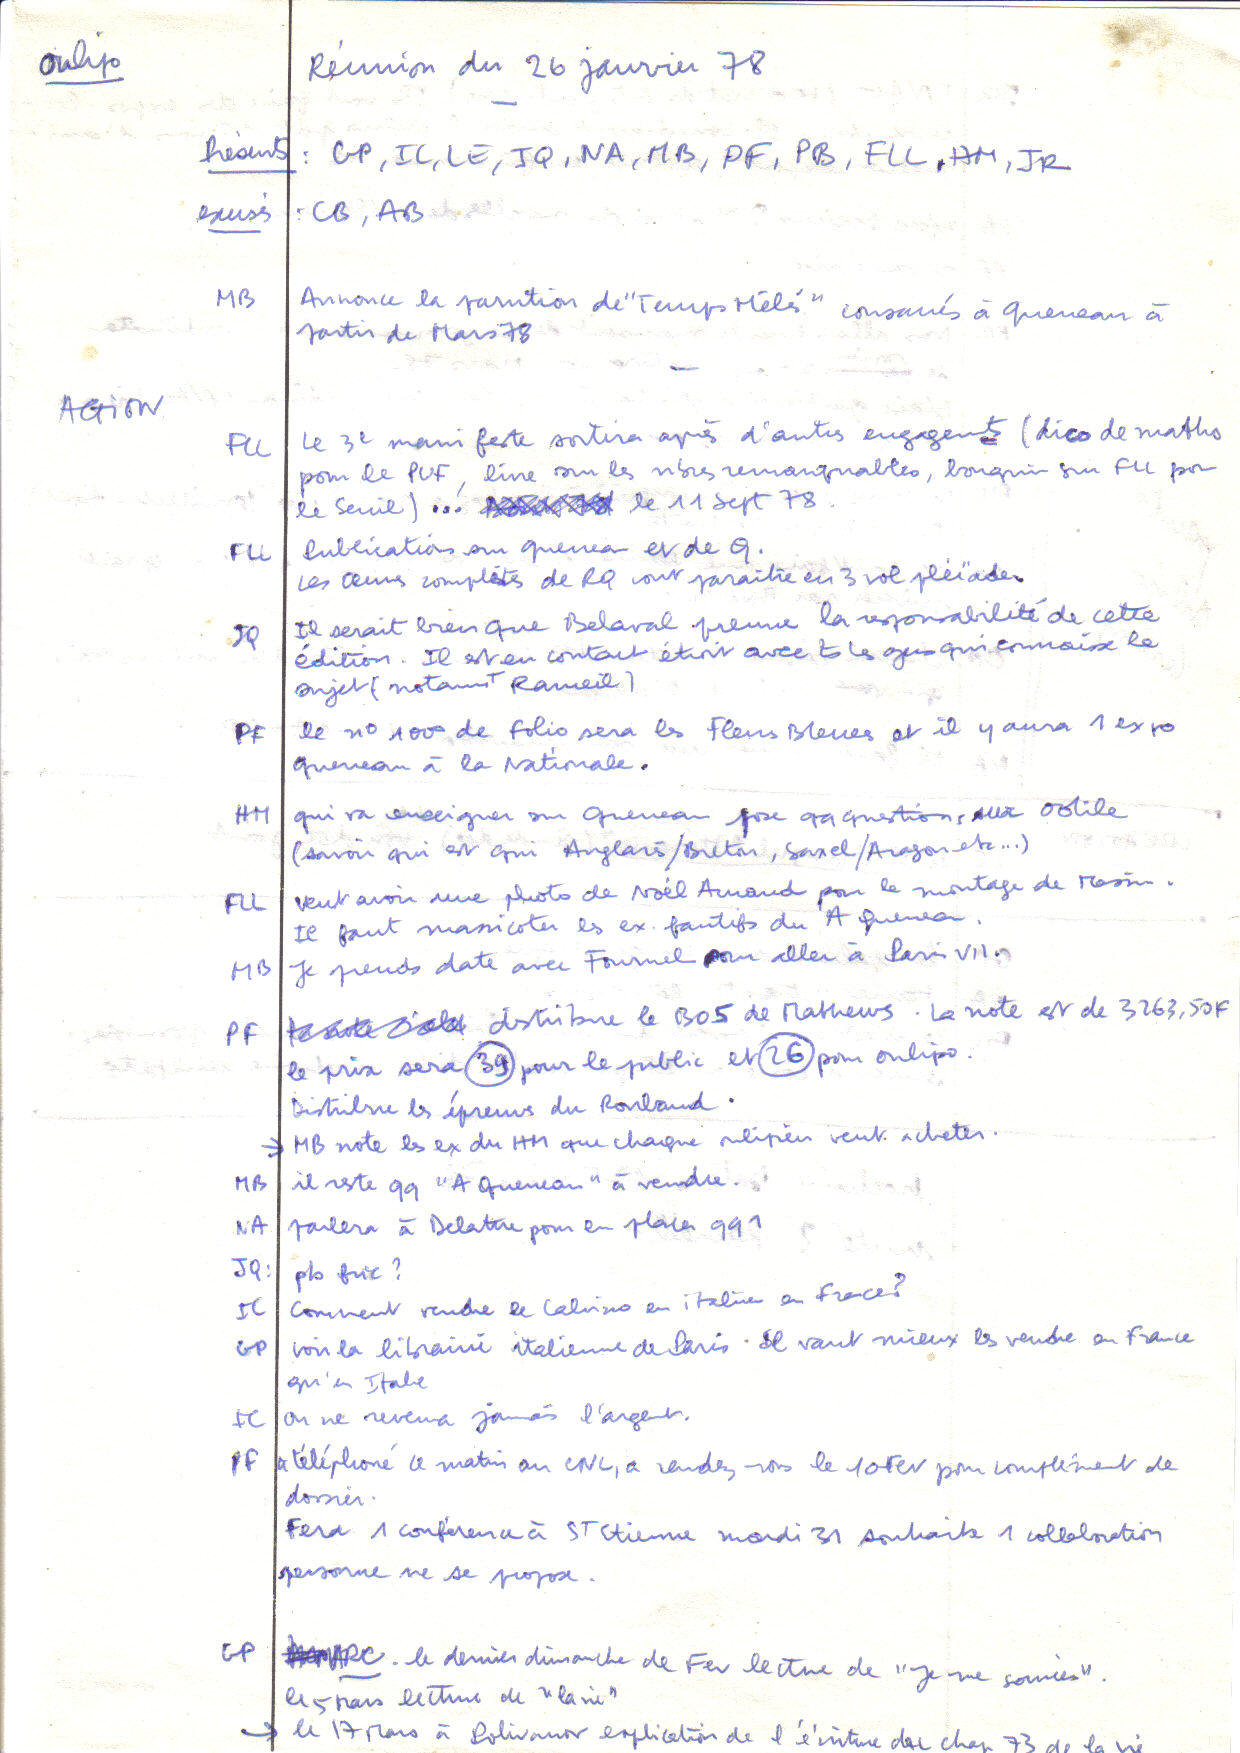 Oulipo
Réunion du 26 janvier 78
Présents : GP, IC, LE, JQ, NA, MB, PF, PB, FLL, HM, JR
excusés : CB, AB
MB Annonce la parution de "Temps Mêlés" consacrés à Queneau à
partir de Mars 78
ACTION
FLL Le 3e manifeste sortira après d'autres engagents (dico de maths
pour le PUF, livre sur les nbres remarquables, bouquin sur FLL pour
le Seuil) ... le 11 Sept 78.
FLL Publications sur Queneau et de Q.
Les Œuvres complètes de RQ vont paraître en 3 vol pléïades.
JQ Il serait bien que Belaval prenne la responsabilité de cette
édition. Il est en contact étroit avec ts les gens qui connaisse le
sujet (notamt Rameil)
PF le n° 1000 de folio sera les Fleurs Bleues et il y aura 1 expo
Queneau à la Nationale.
HM qui va enseigner sur Queneau pose qq questions sur Odile
(savoir qui est qui Anglarès/Breton, Saxel/Aragon etc...)
FLL veut avoir une photo de Noël Arnaud pour le montage de Massin.
Il faut massicoter les ex. fautifs du A Queneau.
MB Je prends date avec Fournel pour aller à Paris VII.
PF distribue le BO5 de Mathews. La note est de 3263,50F
le prix sera 39 pour le public et 26 pour oulipo.
Distribue les épreuves du Roubaud.
→ MB note les ex du HM que chaque oulipien veut acheter.
MB il reste qq "A Queneau" à vendre.
NA parlera à Delattre pour en placer qq 1
JQ: pb fric ?
IC Comment vendre le Calvino en italien en France ?
GP voir la librairie italienne de Paris. Il vaut mieux les vendre en France
qu'en Italie
IC on ne reverra jamais l'argent.
PF a téléphoné ce matin au CNL, a rendez-vous le 10 Fév pour complément de
dossier.
Fera 1 conférence à St Etienne mardi 31 souhaite 1 collaboration
personne ne se propose.
GP ARC. le dernier dimanche de Fev lecture de "Je me souviens".
le 5 Mars lecture de "la vie"
→ le 17 Mars à Polivanov explication de l'écriture du chap 73 de la vie